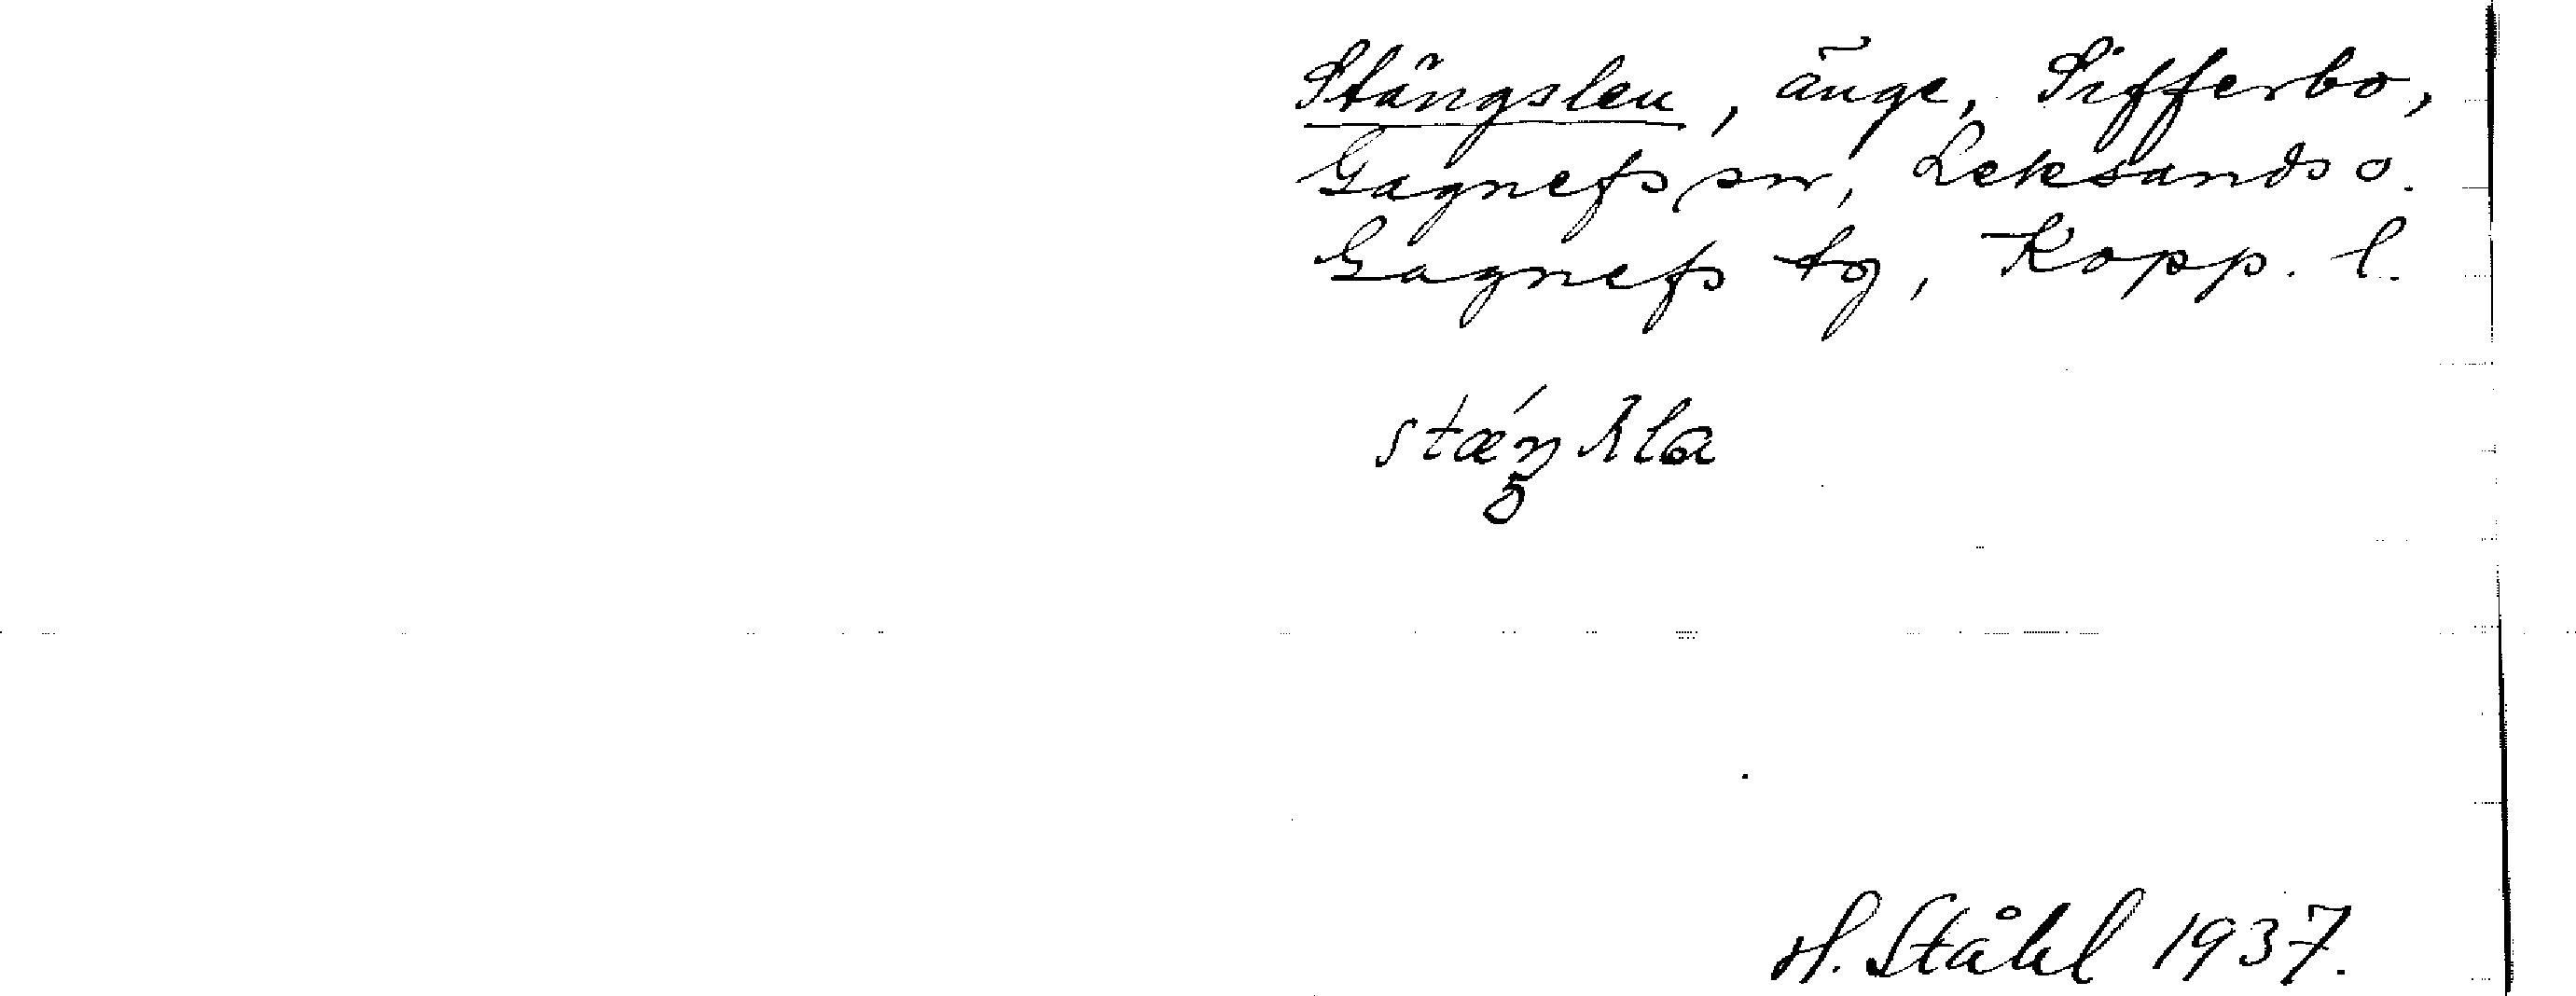 Stängsleu, änge, Sifferbo,
Gagnefs sn, Leksands o.
Gagnefs tg, Kopp. l.
H. Ståhl 1937.